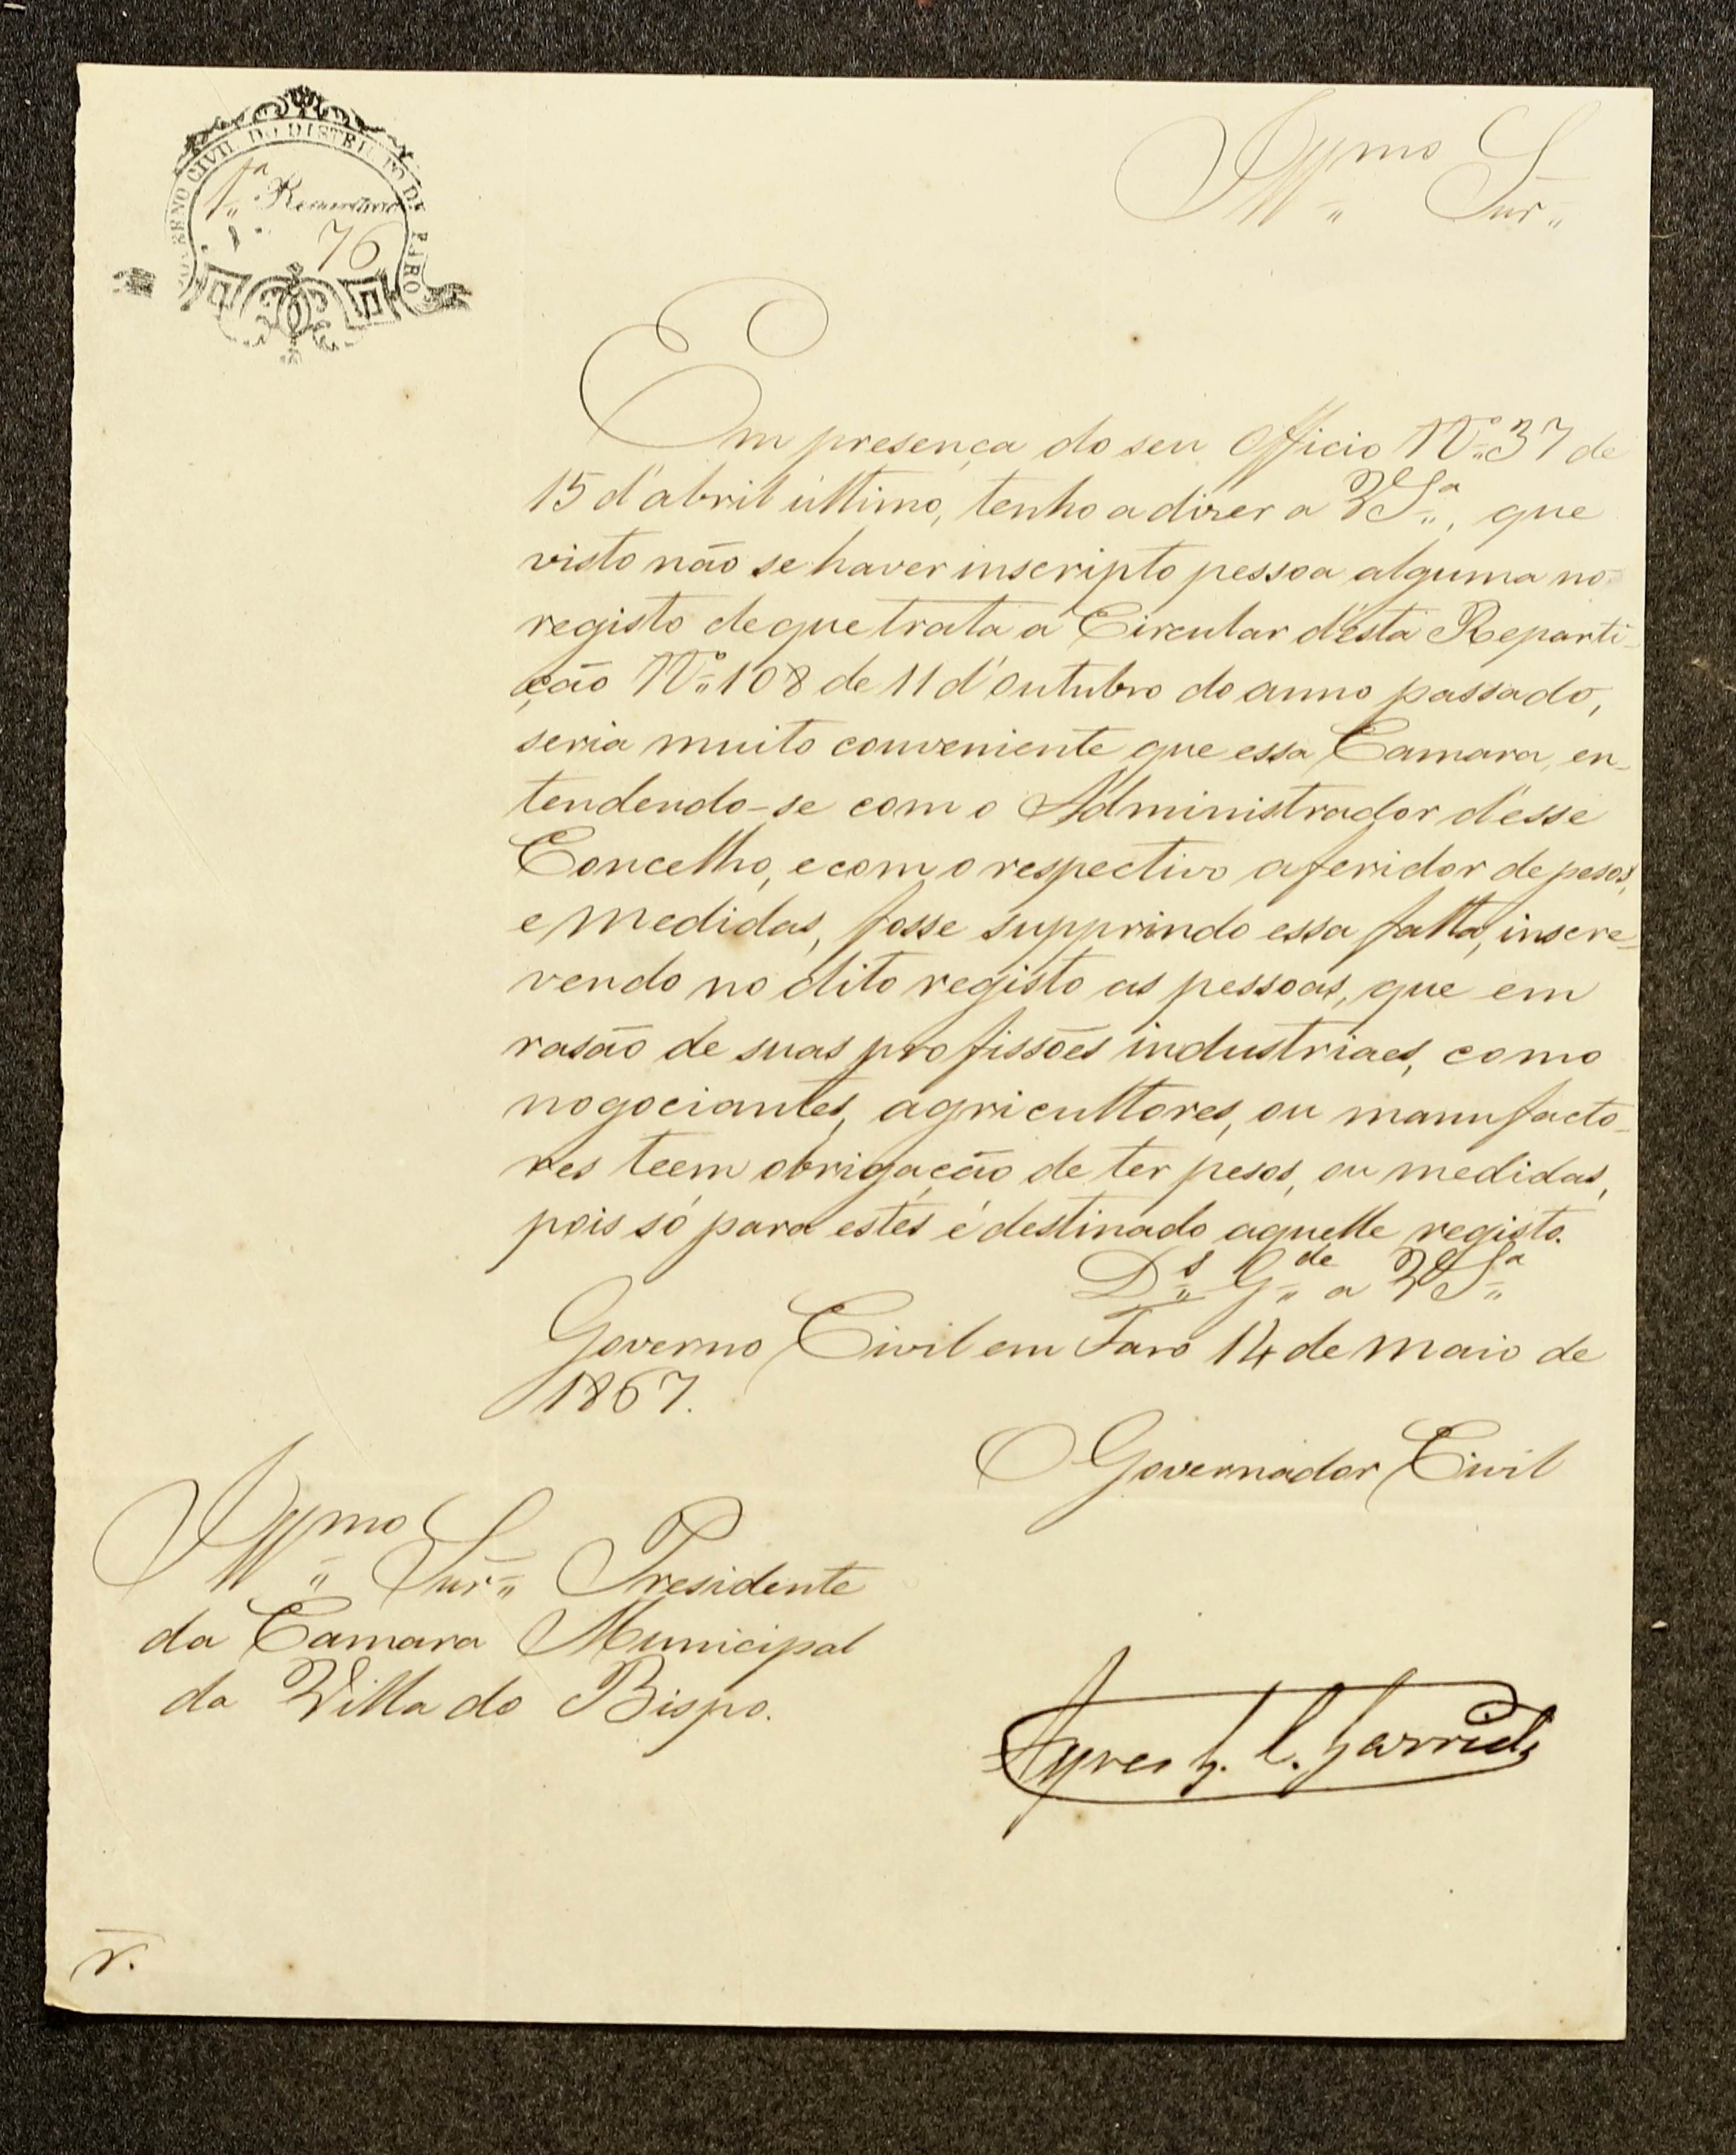 GOVERNO CIVIL DO DISTRICTO DE FARO
1.ª Repartição
76
Illmo Snr.
Em presença do seu Officio Nº 37 de
15 d'abril ultimo, tenho a dizer a VSª, que
visto não se haver inscripto pessoa alguma no
registo de que trata a Circular d'esta Reparti-
ção Nº 108 de 11 d'outubro do anno passado,
seria muito conveniente que essa Camara, en-
tendendo-se com o Administrador d'esse
Concelho, e com o respectivo aferidor de pesos,
e medidas, fosse supprindo essa falta, inscre-
vendo no dito registo as pessoas, que em
rasão de suas profissões industriaes, como
nogociantes, agricultores, ou manufacto-
res teem obrigação de ter pesos, ou medidas,
pois só para estes é destinado aquelle registo.
Ds Gde a VSª
Governo Civil em Faro 14 de Maio de
1867.
O Governador Civil
Illmo Snr. Presidente
da Camara Municipal
da Villa do Bispo.
Ayres G. C. Garrido
r.